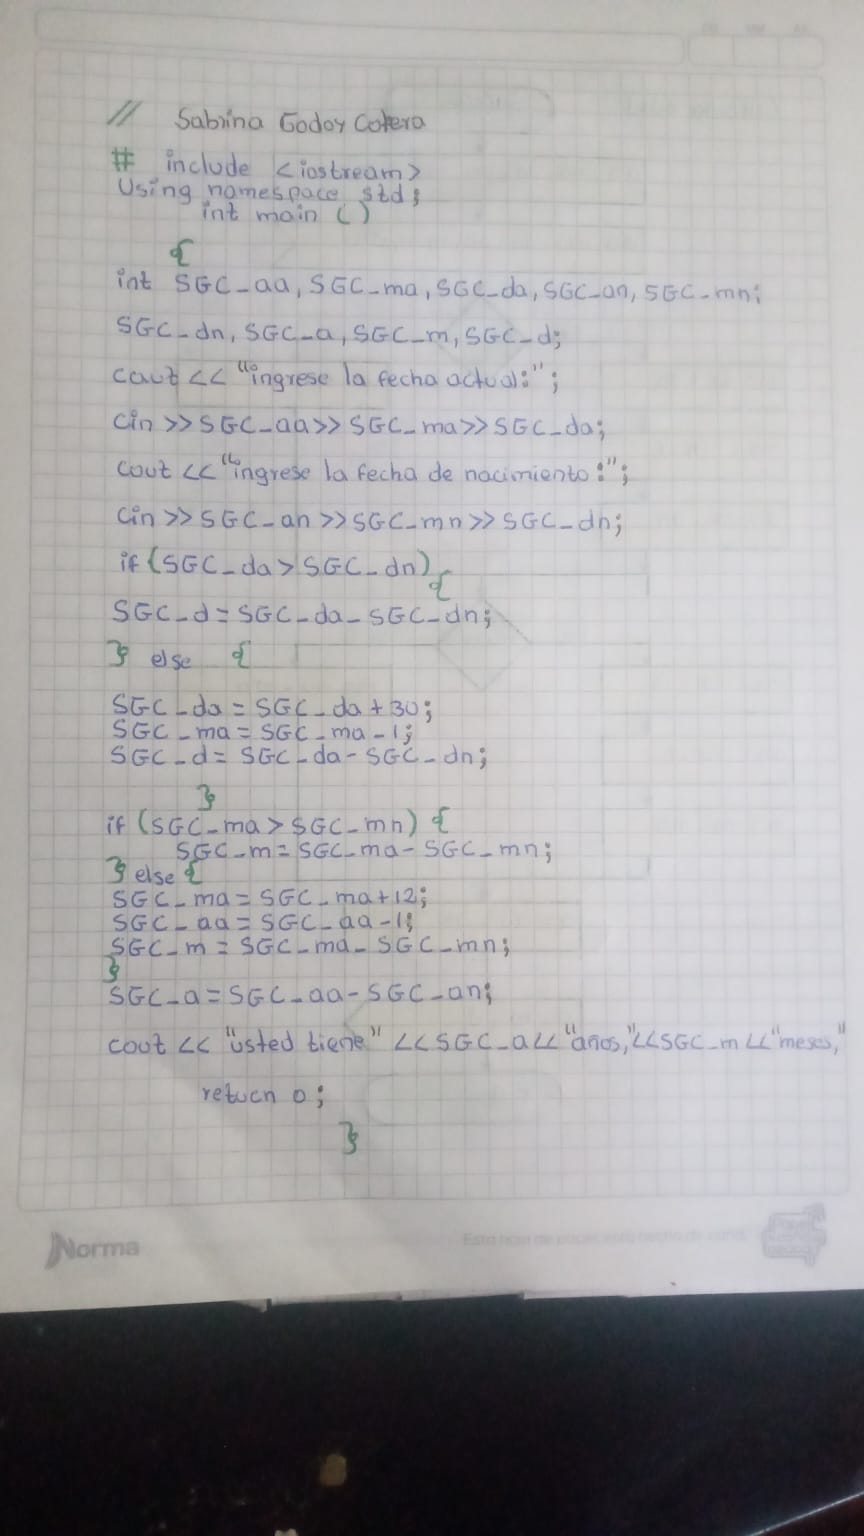 // Sabrina Godoy Cotera
# include <iostream>
Using namespace std;
int main ()
{
int SGC_aa, SGC_ma, SGC_da, SGC_an, SGC_mn;
SGC_dn, SGC_a, SGC_m, SGC_d;
cout << "ingrese la fecha actual:";
Cin >> SGC_aa >> SGC_ma >> SGC_da;
cout << "ingrese la fecha de nacimiento:";
Cin >> SGC_an >> SGC_mn >> SGC_dn;
if (SGC_da > SGC_dn) {
SGC_d = SGC_da - SGC_dn;
} else {
SGC_da = SGC_da + 30;
SGC_ma = SGC_ma - 1;
SGC_d = SGC_da - SGC_dn;
}
if (SGC_ma > SGC_mn) {
SGC_m = SGC_ma - SGC_mn;
} else {
SGC_ma = SGC_ma + 12;
SGC_aa = SGC_aa - 1;
SGC_m = SGC_ma - SGC_mn;
}
SGC_a = SGC_aa - SGC_an;
cout << "usted tiene" << SGC_a << "años," << SGC_m << "meses,"
return 0;
}
Norma